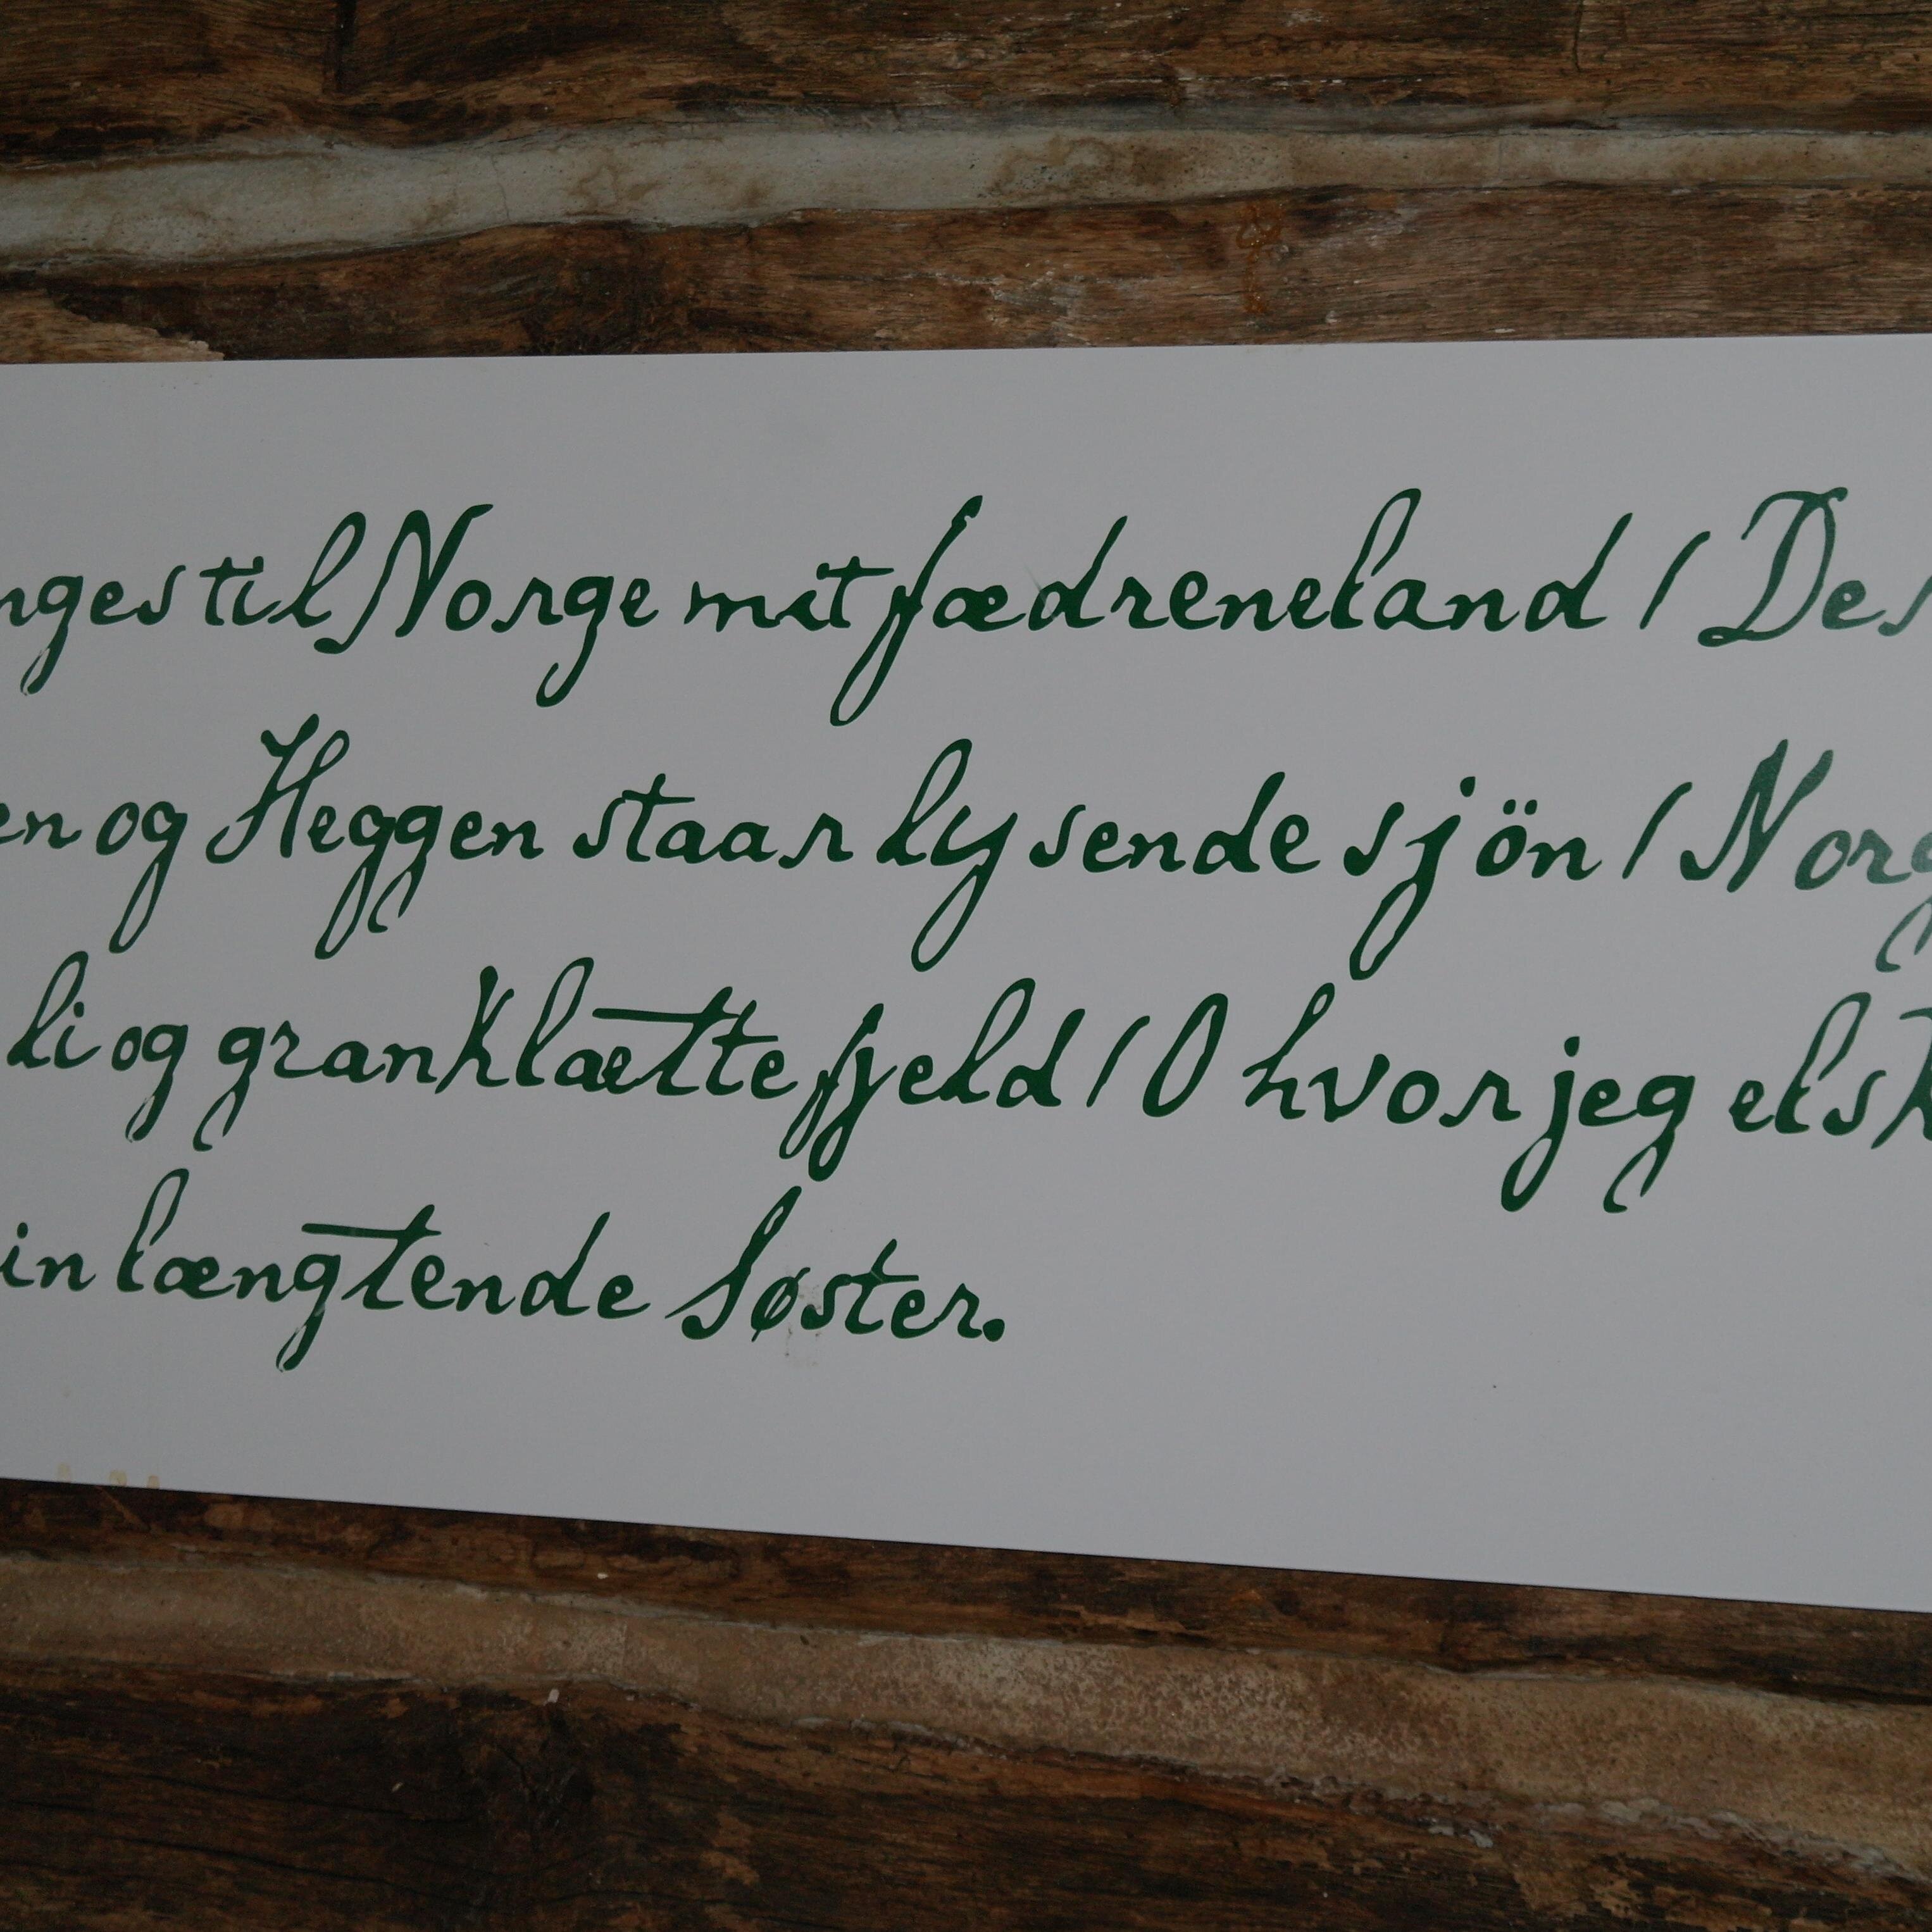 nges til Norge mit fædreneland / Des
en og Heggen staar lysende sjön / Norg
li og granklætte fjeld / O hvor jeg elsk
in længtende Søster.